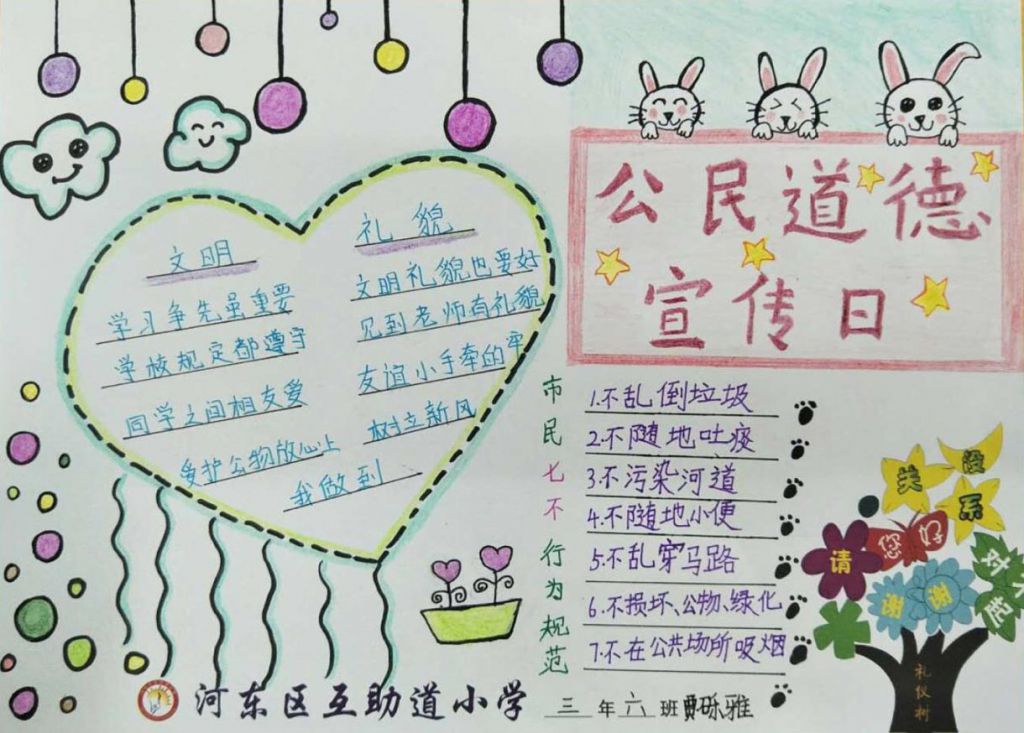 公民道德
宣传日
文明
学习争先虽重要
学校规定都遵守
同学之间相友爱
爱护公物放心上
礼貌
文明礼貌也要好
见到老师有礼貌
友谊小手牵的牢
树立新风
我做到
市民七不行为规范
1.不乱倒垃圾
2.不随地吐痰
3.不污染河道
4.不随地小便
5.不乱穿马路
6.不损坏、公物、绿化
7.不在公共场所吸烟
没关系
您好
请
谢谢
对不起
礼仪树
河东区互助道小学
三年六班贾砾雅